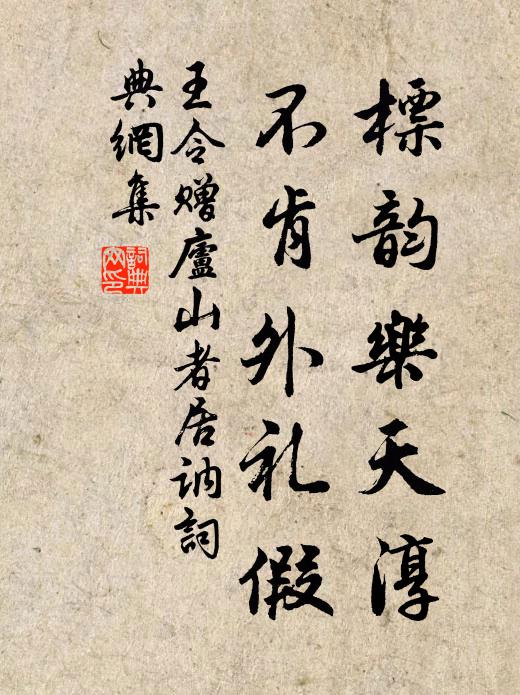 標韵樂天淳
不肯外礼假
王令贈廬山者居訥詞
典網集
詞典